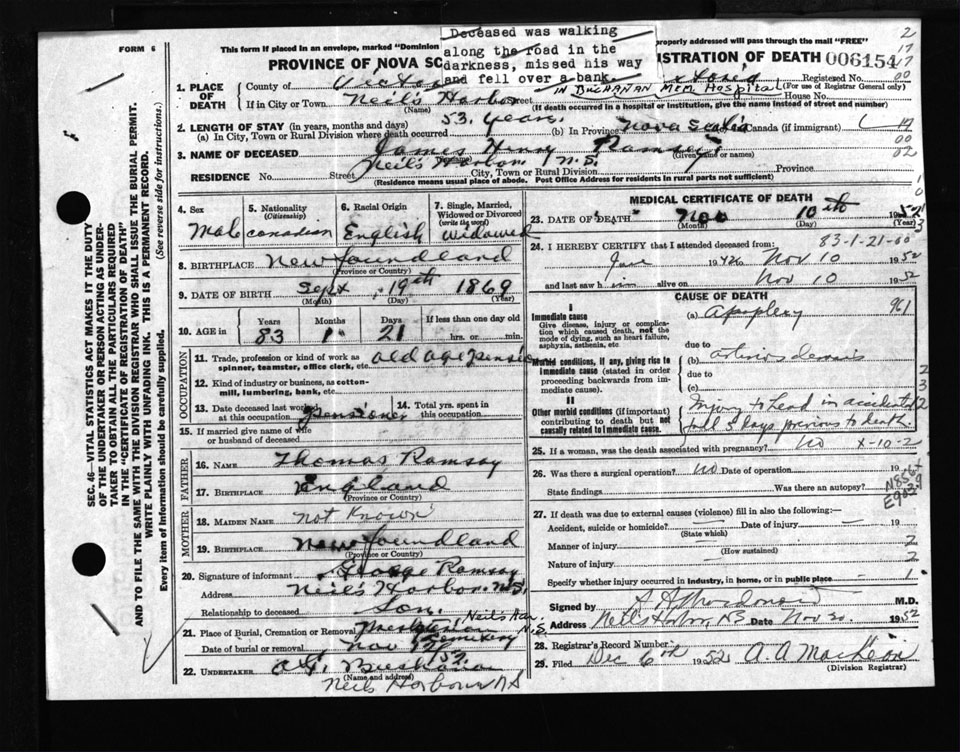 FORM 6
This form if placed in an envelope, marked "Dominion
properly addressed will pass through the mail "FREE"
Deceased was walking
along the road in the
darkness, missed his way
and fell over a bank.
PROVINCE OF NOVA SC
ISTRATION OF DEATH 006154
1. PLACE OF DEATH
County of Victoria
Registered No.
(For use of Registrar General only)
IN BUCHANAN MEM. HOSPITAL
If in City or Town Neil's Harbor
(Name)
House No.
(If death occurred in a hospital or institution, give the name instead of street and number)
2. LENGTH OF STAY (in years, months and days)
(a) In City, Town or Rural Division where death occurred 53 years. (b) In Province Nova Scotia Canada (if immigrant)
3. NAME OF DECEASED James Henry Ramsey
(Given name or names)
RESIDENCE No. Street Neil's Harbor N.S. City, Town or Rural Division Province
(Residence means usual place of abode. Post Office Address for residents in rural parts not sufficient)
4. Sex
Male
5. Nationality
(Citizenship)
Canadian
6. Racial Origin
English
7. Single, Married, Widowed or Divorced
(write the word)
Widowed
8. BIRTHPLACE Newfoundland
(Province or Country)
9. DATE OF BIRTH Sept 19th 1869
(Month) (Day) (Year)
10. AGE in
Years Months Days If less than one day old
83 1 21 hrs. or min.
OCCUPATION
11. Trade, profession or kind of work as
spinner, teamster, office clerk, etc. old age pension
12. Kind of industry or business, as cotton-
mill, lumbering, bank, etc.
13. Date deceased last worked
at this occupation Pensioner
14. Total yrs. spent in
this occupation.
15. If married give name of wife
or husband of deceased
FATHER
16. NAME Thomas Ramsay
17. BIRTHPLACE England
(Province or Country)
MOTHER
18. MAIDEN NAME not Known
19. BIRTHPLACE Newfoundland
(Province or Country)
20. Signature of informant George Ramsay
Address Neil's Harbor. N.S.
Relationship to deceased Son.
21. Place of Burial, Cremation or Removal Presbyterian Cemetery Neil's Har. N.S.
Date of burial or removal Nov 12th 52
22. UNDERTAKER Buchanan
(Name and address)
Neils Harbour NS
MEDICAL CERTIFICATE OF DEATH
23. DATE OF DEATH Nov 10th 1952
(Month) (Day) (Year)
83-1-21-00
24. I HEREBY CERTIFY that I attended deceased from:
June 1942 to Nov 10 1952
and last saw him alive on Nov 10 1952
CAUSE OF DEATH
I
Immediate cause
Give disease, injury or complica-
tion which caused death, not the
mode of dying, such as heart failure,
asphyxia, asthenia, etc.
(a) Apoplexy 961
due to
Morbid conditions, if any, giving rise to
immediate cause (stated in order
proceeding backwards from im-
mediate cause).
(b) arteriosclerosis
due to
(c)
II
Other morbid conditions (if important)
contributing to death but not
causally related to immediate cause.
Injury to head in accidental
fall 5 days previous to death
25. If a woman, was the death associated with pregnancy? no X-10-2
26. Was there a surgical operation? no Date of operation 19
State findings Was there an autopsy?
N856
E903.9
27. If death was due to external causes (violence) fill in also the following:—
Accident, suicide or homicide? Date of injury 19
(State which)
Manner of injury 2
(How sustained)
Nature of injury 2
Specify whether injury occurred in industry, in home, or in public place 1
Signed by M.D.
Address Neil's Harbor NS Date Nov 20. 1952
28. Registrar's Record Number
29. Filed Dec 6th 1952 A. A. MacKeon
(Division Registrar)
SEC. 46—VITAL STATISTICS ACT MAKES IT THE DUTY
OF THE UNDERTAKER OR PERSON ACTING AS UNDER-
TAKER TO OBTAIN ALL THE PARTICULARS REQUIRED
IN THE "CERTIFICATE OF REGISTRATION OF DEATH"
AND TO FILE THE SAME WITH THE DIVISION REGISTRAR WHO SHALL ISSUE THE BURIAL PERMIT.
WRITE PLAINLY WITH UNFADING INK. THIS IS A PERMANENT RECORD.
Every item of Information should be carefully supplied. (See reverse side for instructions.)